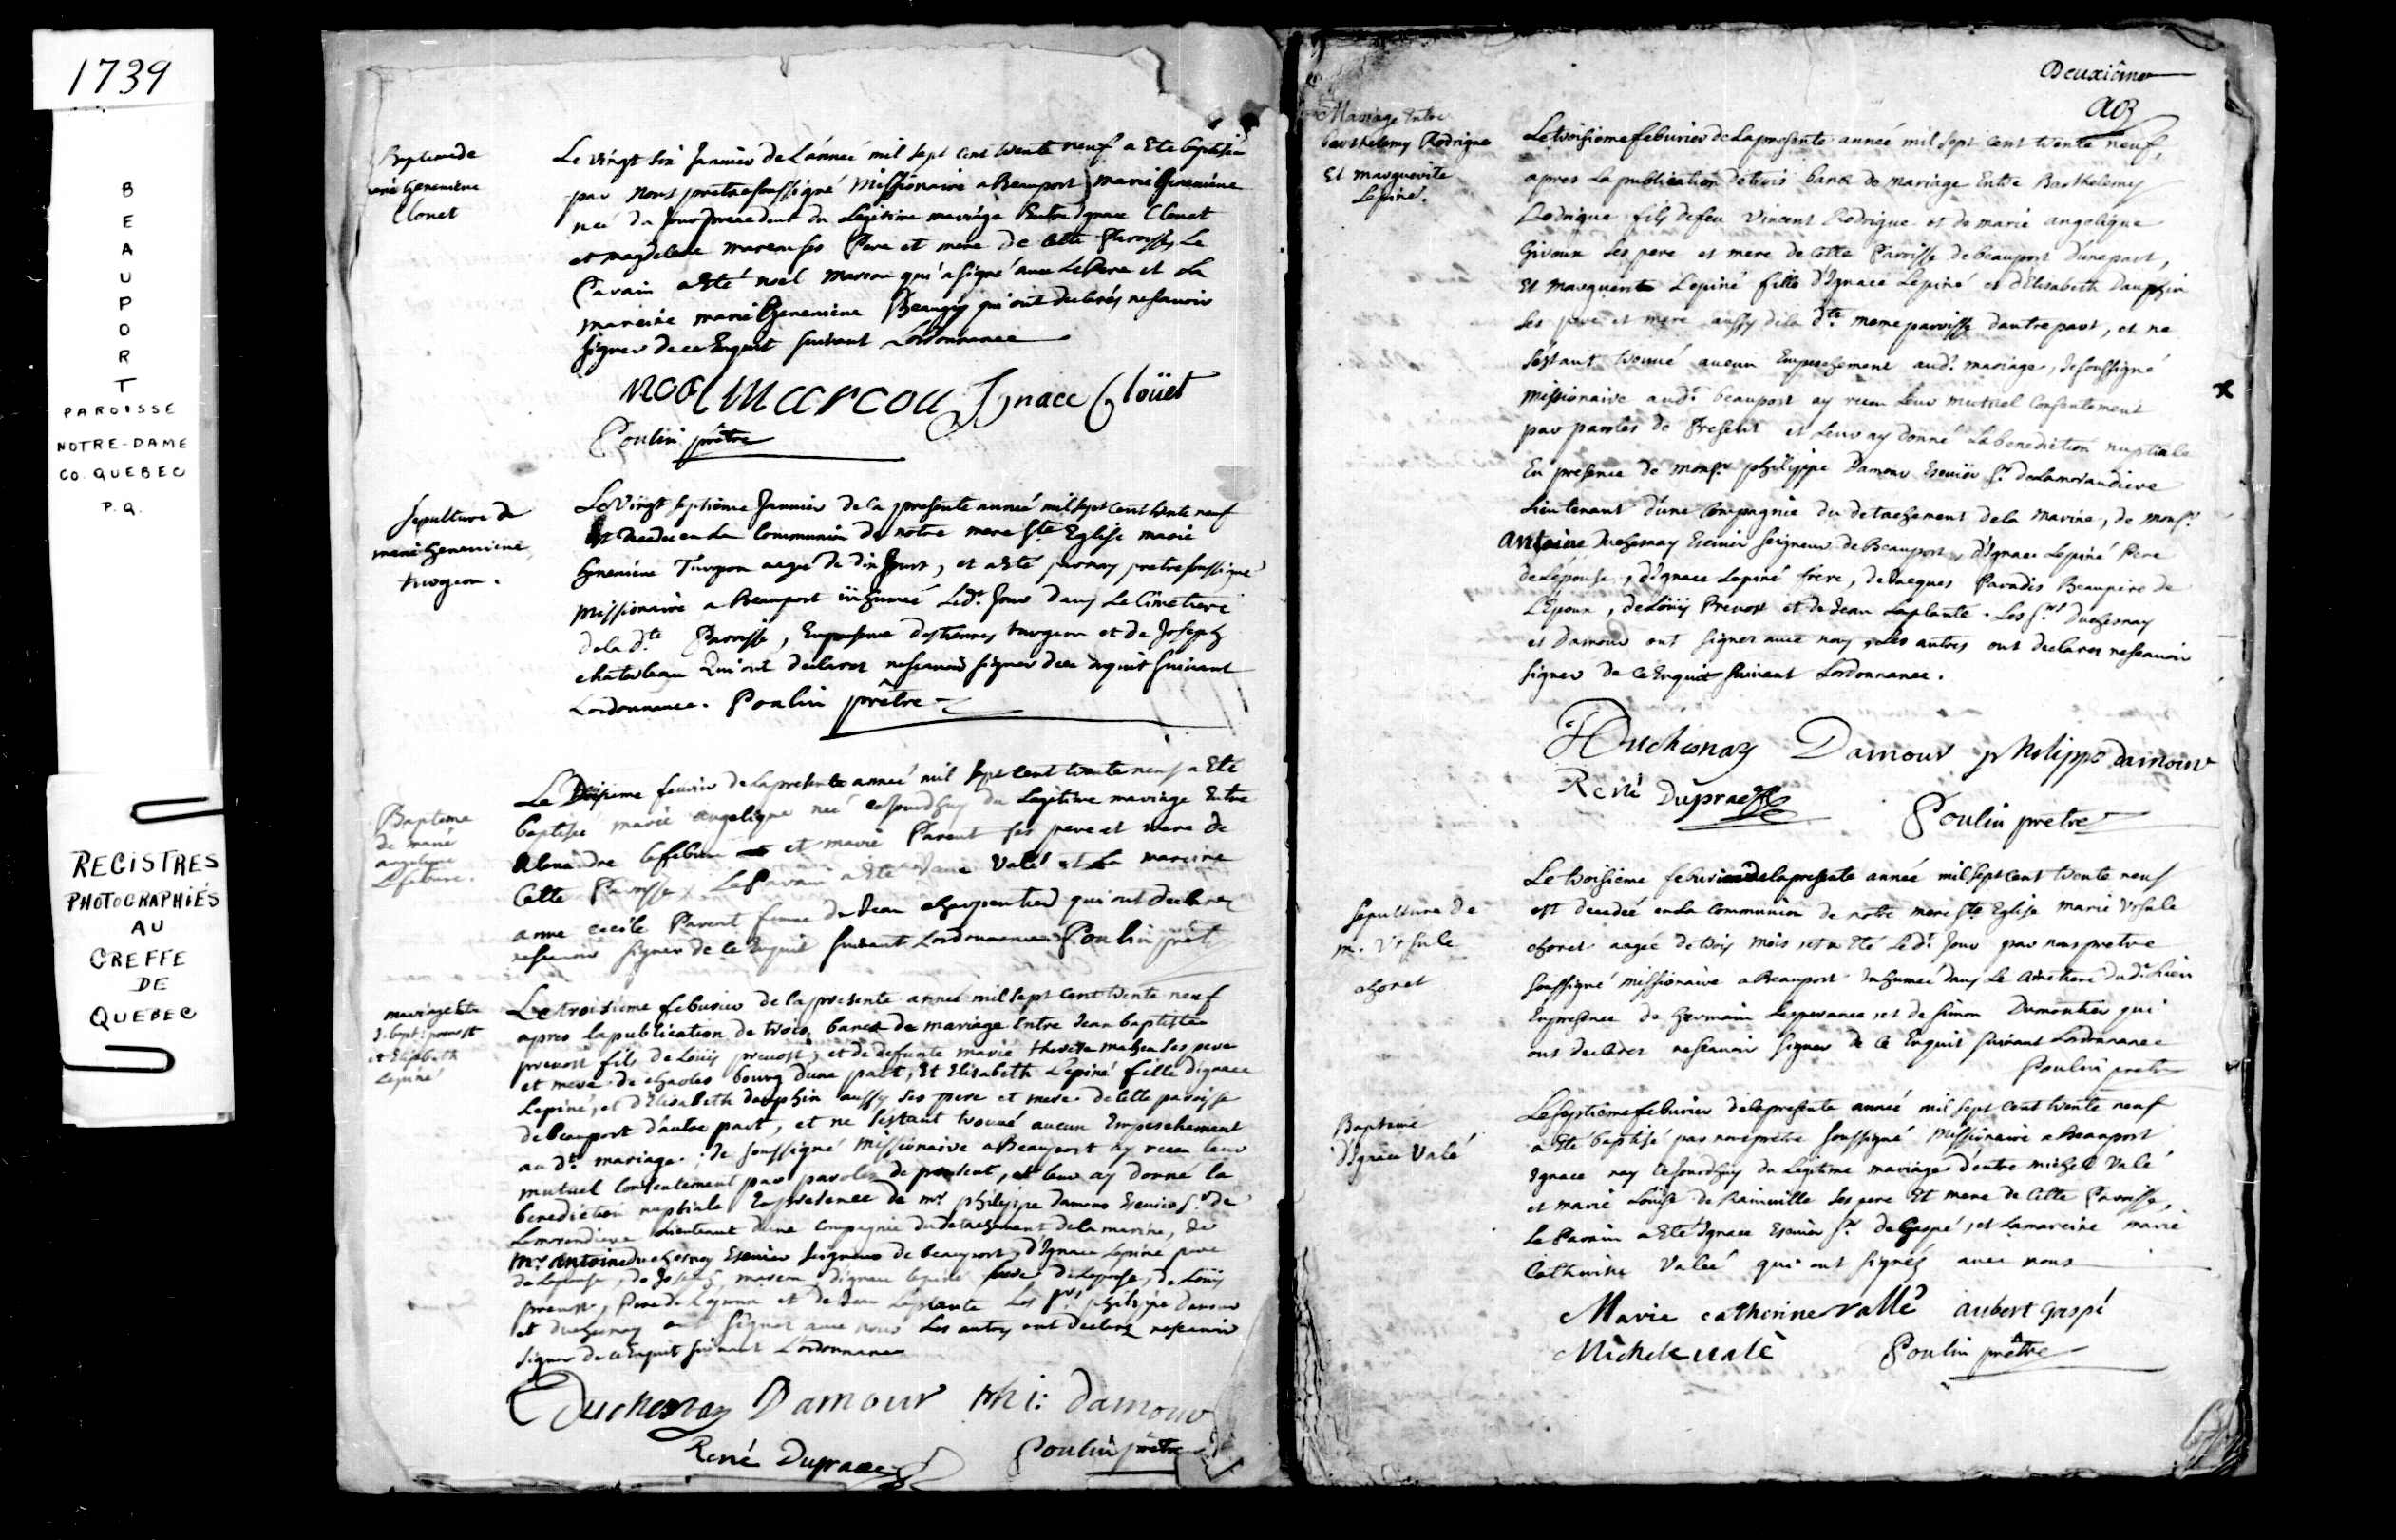 1739
B
E
A
U
P
O
R
T
PAROISSE
NOTRE-DAME
CO. QUEBEC
P.Q.
REGISTRES
PHOTOGRAPHIÉS
AU
GREFFE
DE
QUEBEC
Bapteme de
marie Genevieve
Clouet
Le vingt six Janvier de L'année mil sept cent trente neuf a Ete baptisée
par nous pretre soussigné Missionaire a Beauport marie Genevieve
née du jour precedent du Legitime mariage Entre Ignace Clouet
et magdelene marcou ses Pere et mere de cette Paroisse, Le
Parain a Eté noel Marcou qui a signé avec Le Pere et La
mareine marie Genevieve qui ont declarés ne scavoir
signer de ce Enquit suivant Lordonnance
noel marcou Ignace Cloüet
Poulin prêtre
Sepulture de
marie Genevieve
turgeon.
Le Vingt septieme Janvier de la presente année mil sept cent trente neuf
Est decedee en La Communion de notre mere Ste Eglise marie
Genevieve Turgeon agée de dix Jours, et a Eté par nous pretre soussigné
Missionaire a Beauport inhumée Le dt. Jour dans Le Cimetiere
de la dte Paroisse, En presence destiennes turgeon et de Joseph
chatelleau Qui ont declarer ne scavoir signer de ce enquit suivant
Lordonnance. Poulin prêtre
Bapteme
de marie
angelique
Lefebvre.
Le Deuxieme fevrier de la presente année mil sept cent trente neuf a Eté
baptisée marie angelique née ce jourdhuy du Legitime mariage Entre
Alexandre Lefebvre et marie Parent ses pere et mere de
Cette Paroisse, Le Parain a Eté Valé et La mareine
anne cecile Parent femme de Jean charpentier qui ont declarer
ne scavoir signer de ce Enquit suivant Lordonnance Poulin prêtre
mariage Entre
J. bapt. prevost
et Elisabeth
Lepiné
Le troisieme feburier de la presente année mil sept cent trente neuf
apres la publication de trois bancs de mariage Entre Jean baptiste
prevost fils de Loüis prevost, et de defunte marie therese maheu ses pere
et mere de charles bourg dune part, Et Elisabeth Lepiné fille dignace
Lepiné, et d'Elisabeth dauphin aussy ses pere et mere de Cette paroisse
de beauport d'autre part, et ne s'estant trouvé aucun Empeschement
au dt. mariage; Je soussigné Missionaire a Beauport ay receu leur
mutuel Consentement par paroles de present, et leur ay donné la
benediction nuptiale En presence de mr philippe damour Ecuier sr. de
Lamorandiere Lieutenant dune Compagnie du detachement de la marine, de
Mr. antoine duchesnay Ecuier seigneur de beauport, d'Ignace Lepine pere
de Lepouse, de Joseph marcou, dignace lepiné frere de Lepouse, de Loüis
prevost, Pere de L'epoux et de Jean Laplante Les srs philippe damour
et duchesnay ont signer avec nous Les autres ont declarez ne scavoir
signer de ce Enquit suivant L'ordonnance
Duchesnay Damour phi: damour
René Duprac
Poulin prêtre
Deuxiéme
Mariage Entre
barthelemy Rodrigue
Et marguerite
Lepiné.
Le troisieme feburier de La presente année mil sept cent trente neuf,
apres La publication de trois bancs de mariage Entre Barthelemy
Rodrigue fils de feu Vincent Rodrigue et de marie angelique
Giroux ses pere et mere de Cette Paroisse de beauport d'une part,
Et marguerite Lepiné fille d'Ignace Lepiné et d'Elisabeth dauphin
ses pere et mere aussy de la dte meme paroisse dautre part, et ne
s'estant trouvé aucun Empeschement audt. mariage, Je soussigné
Missionaire audt. beauport ay receu Leur mutuel Consentement
par paroles de Present et Leur ay donné La benediction nuptiale
En presence de monsr. philippe Damour Ecuier sr. de Lamorandiere
Lieutenant d'une Compagnie du detachement de la Marine, de Monsr.
Antoine duchesnay Ecuier seigneur de Beauport, d'Ignace Lepiné Pere
de L'epouse, d'Ignace Lepiné frere, de Jacques Paradis Beaupere de
L'Epoux, de Loüis Prevost et de Jean Laplante. Les srs Duchesnay
et Damour ont signer avec nous, Les autres ont declarer ne scavoir
signer de ce Enquit suivant Lordonnance.
x
Duchesnay Damour philippe damour
René Duprac
Poulin pretre
Sepulture de
m. Ursule
choret
Le troisieme feburier de la presente année mil sept cent trente neuf
est decedée en La Communion de notre mere Ste Eglise marie Ursule
choret agée de trois mois et a Eté Le dt. Jour par nous pretre
soussigné missionaire a Beauport Inhumée dans Le Cimetiere du dt. Lieu
En presence de Germain Lesperance, et de simon Dumontier qui
ont declarer ne scavoir signer de Ce Enquit suivant Lordonnance
Poulin pretre
Baptemé
d'Ignace Valé
Le septieme feburier de la presente année mil sept cent trente neuf
a Eté baptisé par nous pretre soussigné Missionaire a Beauport
Ignace nay Ce Jourdhuy du Legitime mariage d'entre michel Valé
et marie Loüise de Rainville ses pere Et mere de Cette Paroisse,
Le Parain a Eté Ignace Ecuier sr. de Gaspé, et La mareine marie
Catherine Valeé qui ont signés avec nous
Marie catherine vallé aubert Gaspé
Michel valé
Poulin prêtre